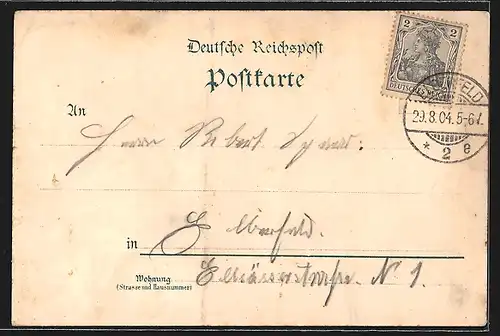 Deutsche Reichspost
Postkarte
2 2
DEUTSCHES REICH
ELD
29.8.04.5-6N.
* 2 e
An
Herrn Robert
in Elberfeld.
Wohnung
(Strasse und Hausnummer)
N 1.